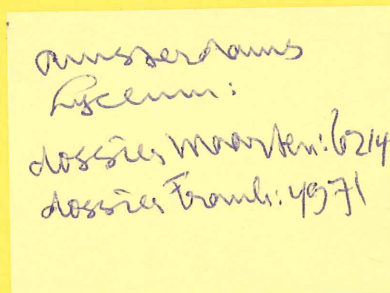 Amsterdams
Lyceum:
dossier Maarten: 6214
dossier Frank: 4971